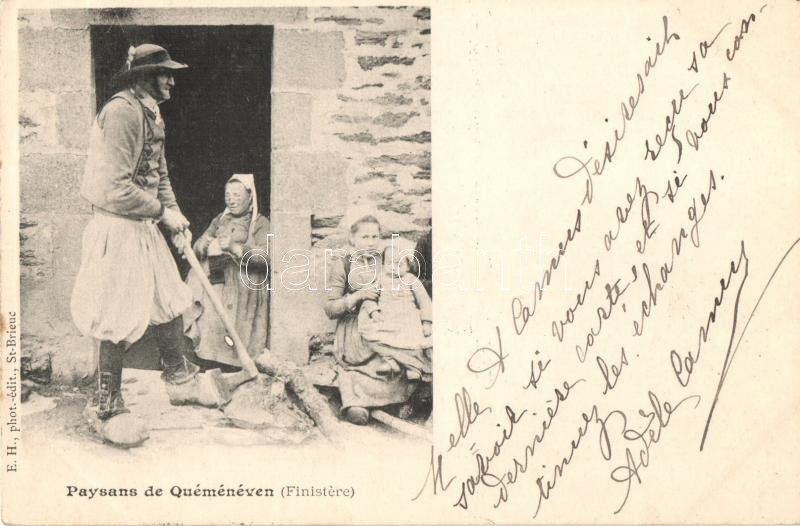 E. H., phot.-édit., St-Brieuc
Paysans de Quéménéven (Finistère)
darabanth
Melle A Camus désiserait
savoir si vous avez reçu sa
dernière carte, et si vous con-
tinuez les échanges.
Adèle Camus